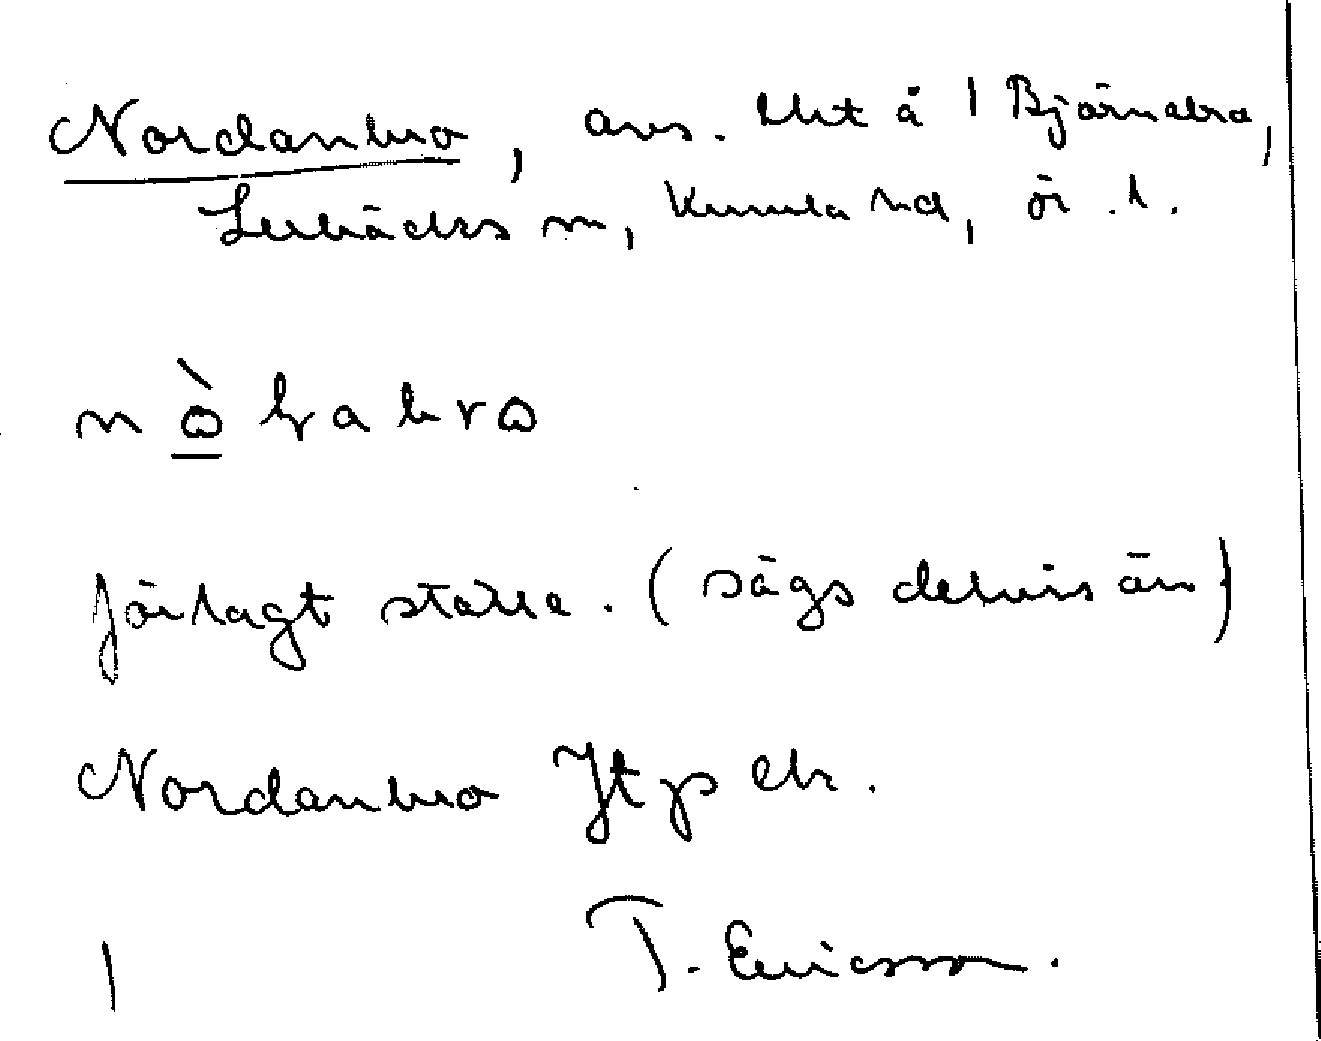 Nordanbro, avs. lht å 1 Björnabro,
Lerbäcks sn, Kumla hd, ör. l.
förlagt ställe. (sägs delvis än)
Nordanbro Jtp ek.
T. Ericsson.